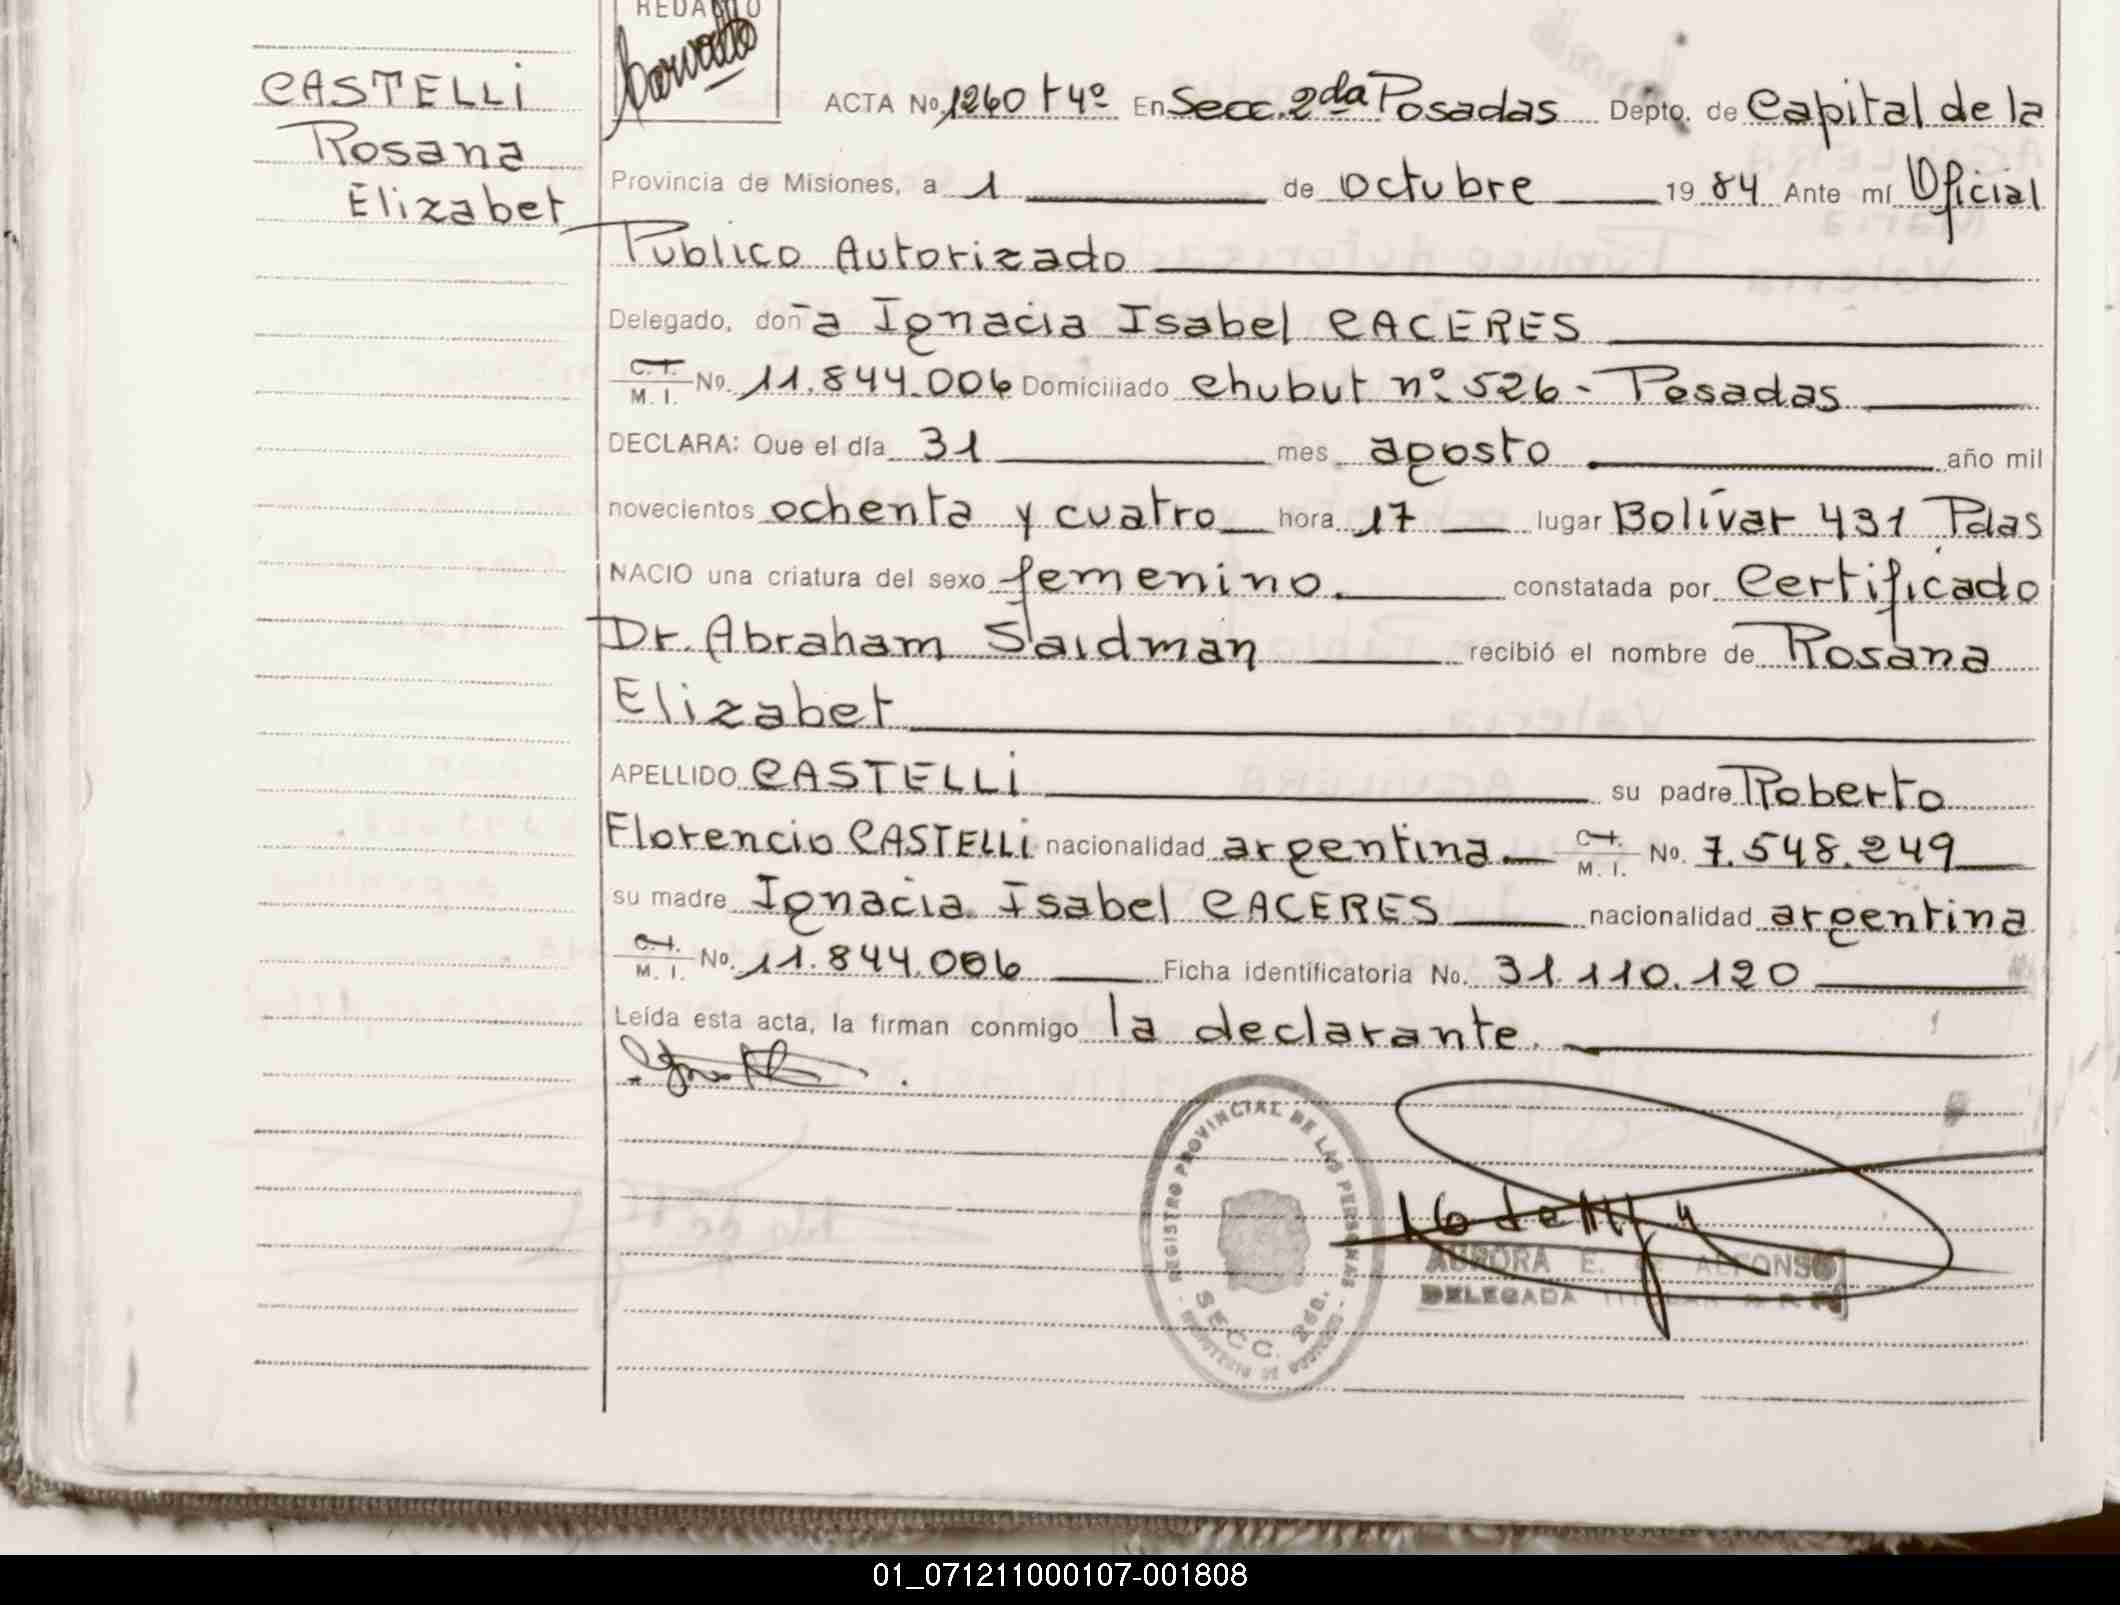 REDACTO
CASTELLI
Rosana
Elizabet
ACTA No. 1260 t 4º En Secc. 2da Posadas Depto. de Capital de la
Provincia de Misiones, a 1 de octubre 19 84 Ante mí Oficial
Publico Autorizado
Delegado, doña Ignacia Isabel CACERES
C. I.
M. I. No. 11.844.006 Domiciliado Chubut nº 526 - Posadas
DECLARA: Que el día 31 mes agosto año mil
novecientos ochenta y cuatro hora 17 lugar Bolívar 431 Pdas
NACIO una criatura del sexo femenino. constatada por Certificado
Dr. Abraham Saidman recibió el nombre de Rosana
Elizabet
APELLIDO CASTELLI su padre Roberto
Florencio CASTELLI nacionalidad argentina C. I.
M. I. No. 7.548.249
su madre Ignacia Isabel CACERES nacionalidad argentina
C. I.
M. I. No. 11.844.006 Ficha identificatoria No. 31.110.120
Leída esta acta, la firman conmigo la declarante.
REGISTRO PROVINCIAL DE LAS PERSONAS
SECC. 2da.
AURORA E. de ALFONSO
DELEGADA TITULAR R. P. P.
01_071211000107-001808